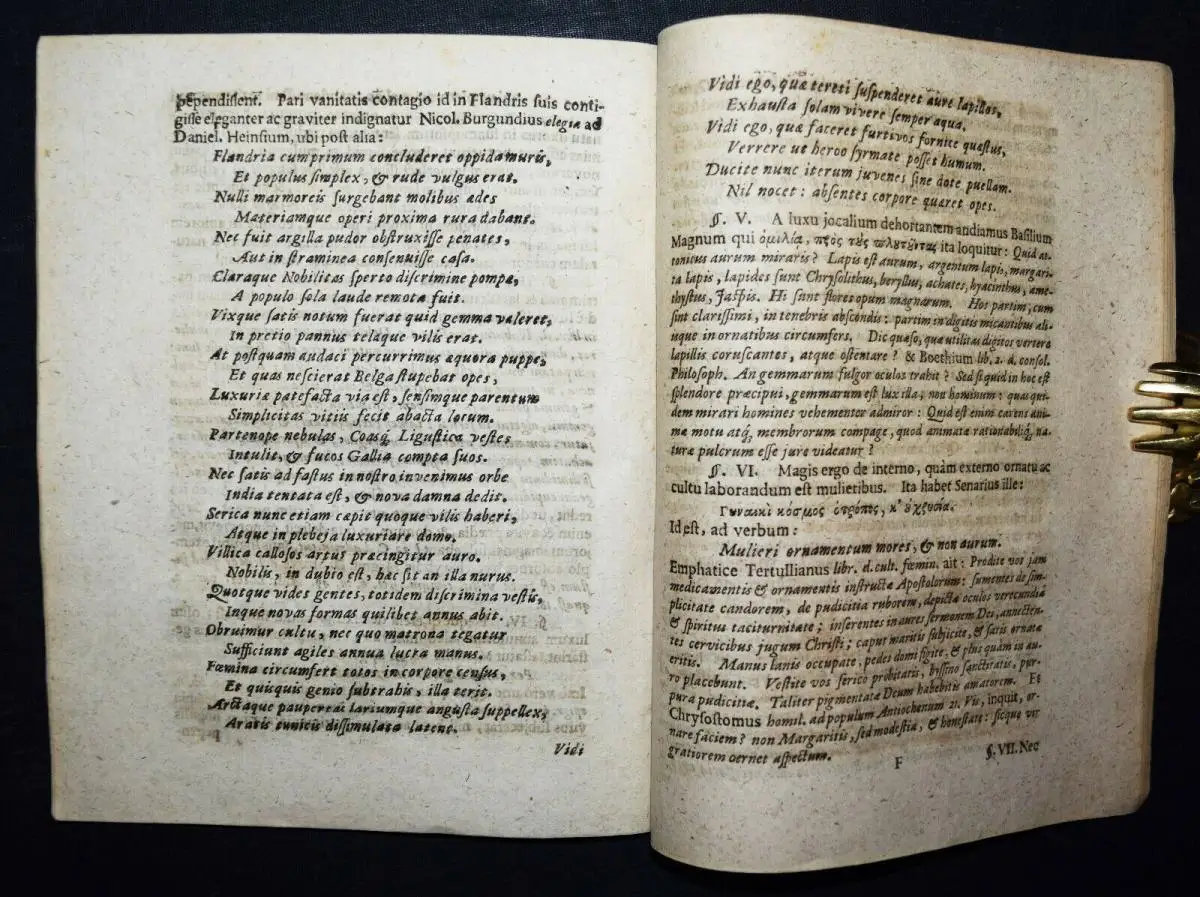 pependissent. Pari vanitatis contagio id in Flandris suis conti-
gisse eleganter ac graviter indignatur Nicol. Burgundius elegia ad
Daniel. Heinsium, ubi post alia:
Flandria cumprimum concluderet oppida muris,
Et populus simplex, & rude vulgus erat.
Nulli marmoreis surgebant molibus ædes
Materiamque operi proxima rura dabant.
Nec fuit argilla pudor obstruxisse penates,
Aut in straminea consenuisse casa.
Claraque Nobilitas sperto discrimine pompæ,
A populo sola laude remota fuit.
Vixque satis notum fuerat quid gemma valeret,
In pretio pannus telaque vilis erat.
At postquam audaci percurrimus æquora puppe,
Et quas nescierat Belga stupebat opes,
Luxuriæ patefacta via est, sensimque parentum
Simplicitas vitiis fecit abacta locum.
Partenope nebulas, Coasq; Ligustica vestes
Intulit, & fucos Gallia compta suos.
Nec satis ad fastus in nostro invenimus orbe
India tentata est, & nova damna dedit.
Serica nunc etiam cæpit quoque vilis haberi,
Atque in plebeja luxuriare domo.
Villica callosos artus præcingitur auro.
Nobilis, in dubio est, hæc sit an illa nurus.
Quotque vides gentes, totidem discrimina vestis,
Inque novas formas quilibet annus abit.
Obruimur cultu, nec quo matrona tegatur
Sufficiunt agiles annua lucra manus.
Fœmina circumfert totos in corpore census,
Et quisquis genio subtrahis, illa terit.
Arctaque pauperei lariumque angusta suppellex,
Aratis tunicis dissimulata latent.
Vidi
Vidi ego, quæ tereti suspenderet aure lapillos,
Exhausta solam vivere semper aqua.
Vidi ego, quæ faceret furtivos fornice quæstus,
Verrere ut heroo syrmate posset humum.
Ducite nunc iterum juvenes sine dote puellam.
Nil nocet: absentes corpore quæret opes.
§. V. A luxu jocalium dehortantem audiamus Basilium
Magnum qui ὁμιλία, πρὸς τὺς πλουτῦντας ita loquitur: Quid at-
tonitus aurum miraris? Lapis est aurum, argentum lapis, margari-
ta lapis, lapides sunt Chrysolithus, beryllus, achates, hyacinthus, ame-
thystus, Jaspis. Hi sunt flores opum magnarum. Hos partim, cum
sint clarissimi, in tenebris abscondis: partim in digitis micantibus ali-
isque in ornatibus circumfers. Dic quæso, quæ utilitas digitos vertere
lapillis coruscantes, atque ostentare? & Boethium lib. 2. d. consol.
Philosoph. An gemmarum fulgor oculos trahit? Sed si quid in hoc est
splendore præcipui, gemmarum est lux illa, non hominum: quas qui-
dem mirari homines vehementer admiror: Quid est enim carens ani-
mæ motu atq; membrorum compage, quod animatæ rationabiliq; na-
turæ pulcrum esse jure videatur?
§. VI. Magis ergo de interno, quàm externo ornatu ac
cultu laborandum est mulieribus. Ita habet Senarius ille:
Γυναικὶ κόσμος ὁ τρόπος, κ' ὐ χρυσία.
Id est, ad verbum:
Mulieri ornamentum mores, & non aurum.
Emphatice Tertullianus libr. d. cult. fœmin. ait: Prodite vos jam
medicamentis & ornamentis instructæ Apostolorum: sumentes de sim-
plicitate candorem, de pudicitia ruborem, depictæ oculos verecundia
& spiritus taciturnitate; inserentes in aures sermonem Dei, annecten-
tes cervicibus jugum Christi; caput maritis subjicite, & satis ornatæ
eritis. Manus lanis occupate, pedes domi figite, & plus quàm in au-
ro placebunt. Vestite vos serico probitatis, byssino sanctitatis, pur-
pura pudicitiæ. Taliter pigmentatæ Deum habebitis amatorem. Et
Chrysostomus homil. ad populum Antiochenum 21. Vis, inquit, or-
nare faciem? non Margaritis, sed modestia, & honestate: sicque vir
gratiorem cernet aspectum.
F
§. VII. Nec